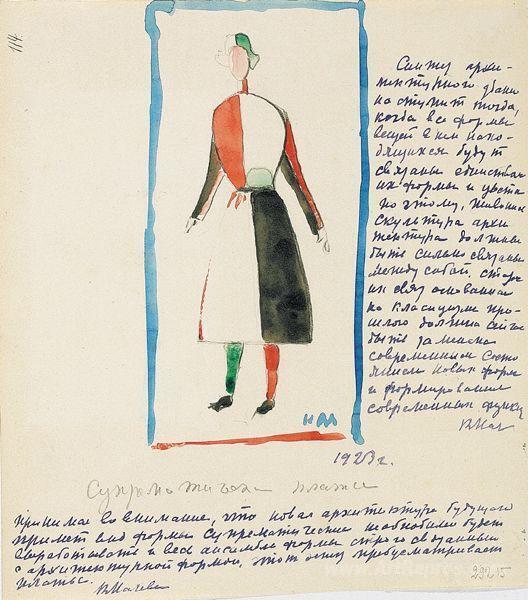 114.
Синтез архи-
тектурного здани
наступит тогда,
когда все формы
вещей в нем нахо-
дящихся будут
связаны единством
их формы и цвета
поэтому, живопись
скульптура архи
тектура должны
быть сильно связаны
между собой, старо
связ основанная
на класицизме про-
шлого должна
быть заменена
современным
новых форм
и формирования
современных
К Мал
КМ
1923 г.
Супрематическ платье
принимая во внимание, что новая архитектура будущего
примет вид формы супрематические необходимо будет
выработать и весь ансамбль формы строго связанный
с архитектурной формой, этот эскиз предусматривает
платье.
К Малеви